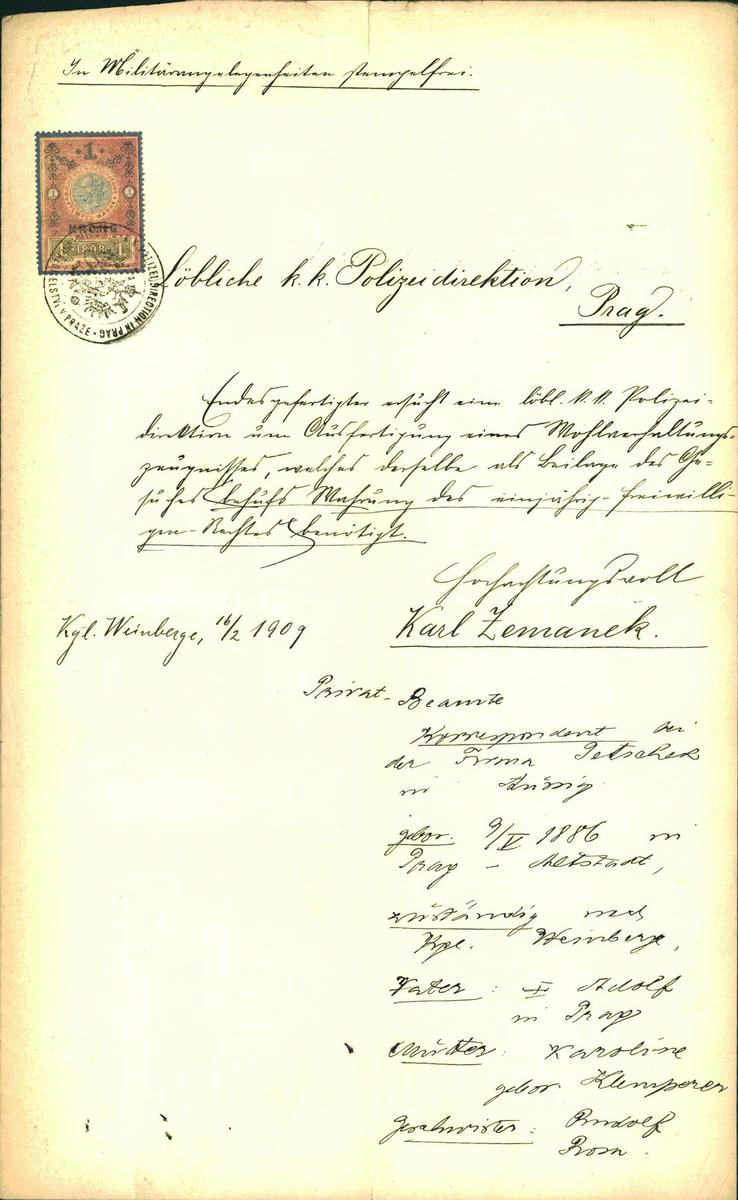 In Militärangelegenheiten stempelfrei.
1
1 1
KRONE
1 1898 1
POLIZEIDIRECTION IN PRAG · ŘEDITELSTVÍ V PRAZE
Löbliche k. k. Polizeidirektion,
Prag.
Endesgefertigter ersucht eine löbl. k. k. Polizei-
direktion um Ausfertigung eines Wohlverhaltungs-
zeugnisses, welches derselbe als Beilage des Ge-
suches behufs Wahrung des einjährig-freiwilli-
gen-Rechtes benötigt.
Hochachtungsvoll
Kgl. Weinberge, 16/2 1909
Karl Zemanek.
Privat-Beamte
Korrespondent bei
der Firma Petschek
in Aussig
gebor. 9/V 1886 in
Prag – Altstadt,
zuständig nach
Kgl. Weinberge,
Vater: Adolf
in Prag
Mutter: Karoline
gebor. Klemperer
Geschwister: Rudolf
Rosa.